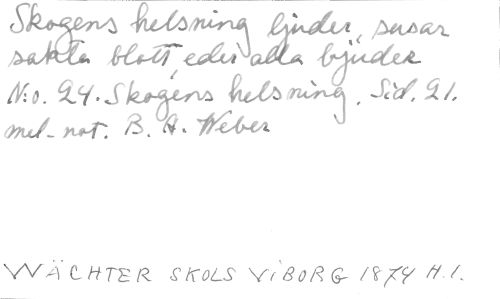 Skogens helsning ljuder, susar
sakta blott, eder alla bjuder
N:o. 24. Skogens helsning. Sid. 21.
mel. not. B. A. Weber
WÄCHTER SKOLS VIBORG 1874 H.1.